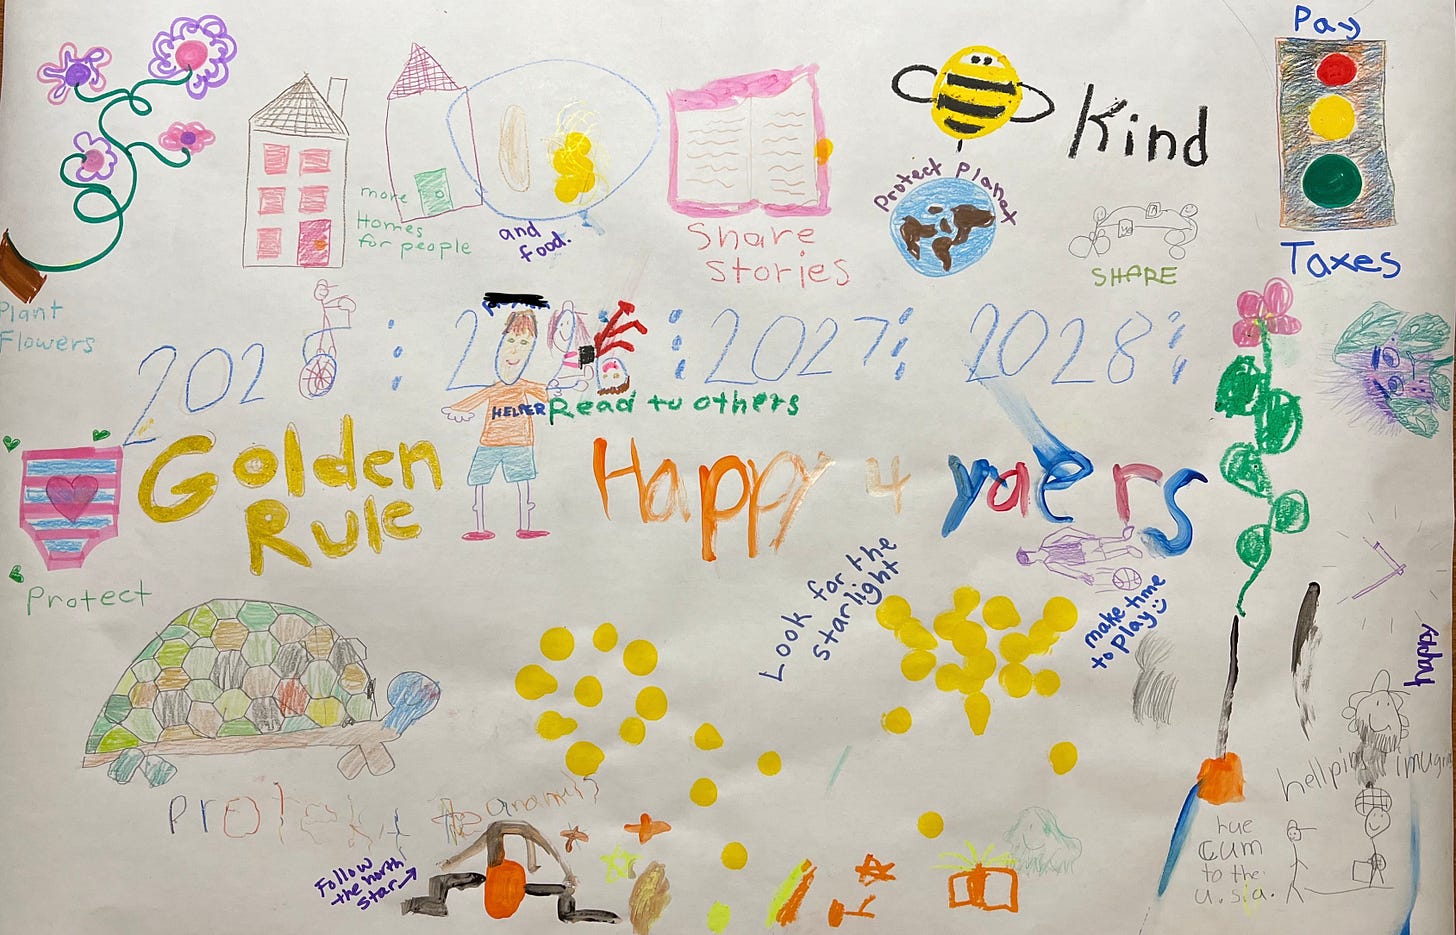 Pay
Kind
Protect Planet
more
Homes
for people
and
food.
Share
stories
SHARE
Taxes
Plant
Flowers
202
2027
2028
HELPER
Read to others
Golden
Rule
Happy 4 yaers
Protect
Look for the
starlight
make time
to play
happy
hellping
Follow
the north
star
cum
to the
u.s.a.